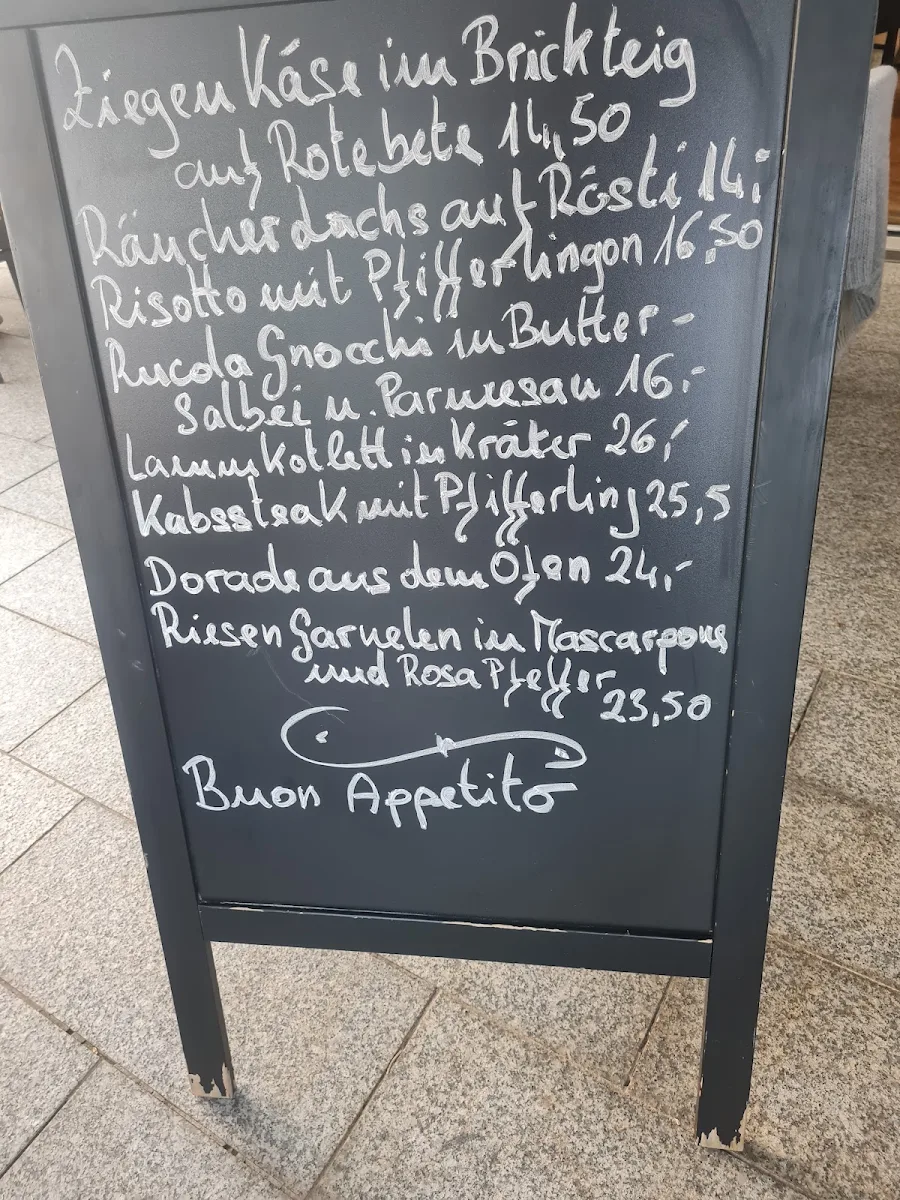 Ziegen Käse im Brickteig
auf Rotebete 14,50
Räucherlachs auf Rösti 14,-
Risotto mit Pfifferlingen 16,50
Rucola Gnocchi in Butter-
Salbei u. Parmesan 16,-
Lamm Kotlett in Kräter 26,-
Kabssteak mit Pfifferling 25,5
Dorade aus dem Ofen 24,-
Riesen Garnelen in Mascarpone
und Rosa Pfeffer
23,50
Buon Appetito